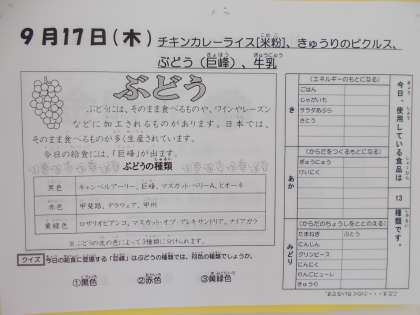 9月17日(木) チキンカレーライス[米粉]、きゅうりのピクルス、
ぶどう(巨峰)、牛乳
ぶどう
ぶどうには、そのまま食べるものや、ワインやレーズン
などに加工されるものがあります。日本では、
そのまま食べるものが多く生産されています。
今日の給食には、「巨峰」が出ます。
ぶどうの種類
黒色 キャンベルアーリー、巨峰、マスカット・ベリーA、ピオーネ
赤色 甲斐路、デラウェア、甲州
黄緑色 ロザリオビアンコ、マスカット・オブ・アレキサンドリア、ナイアガラ
※ぶどうの皮の色によって3種類に分けられます。
クイズ 今日の給食に登場する「巨峰」はぶどうの種類では、何色の種類でしょうか。
①黒色 ②赤色 ③黄緑色
今日、使用している食品は
13
種類です。
き
(エネルギーのもとになる)
ごはん
じゃがいも
サラダあぶら
さとう
あか
(からだをつくるもとになる)
ぎゅうにゅう
けいにく
みどり
(からだのちょうしをととのえる)
たまねぎ ぶどう
にんじん
グリンピース
にんにく
りんごピューレ
きゅうり